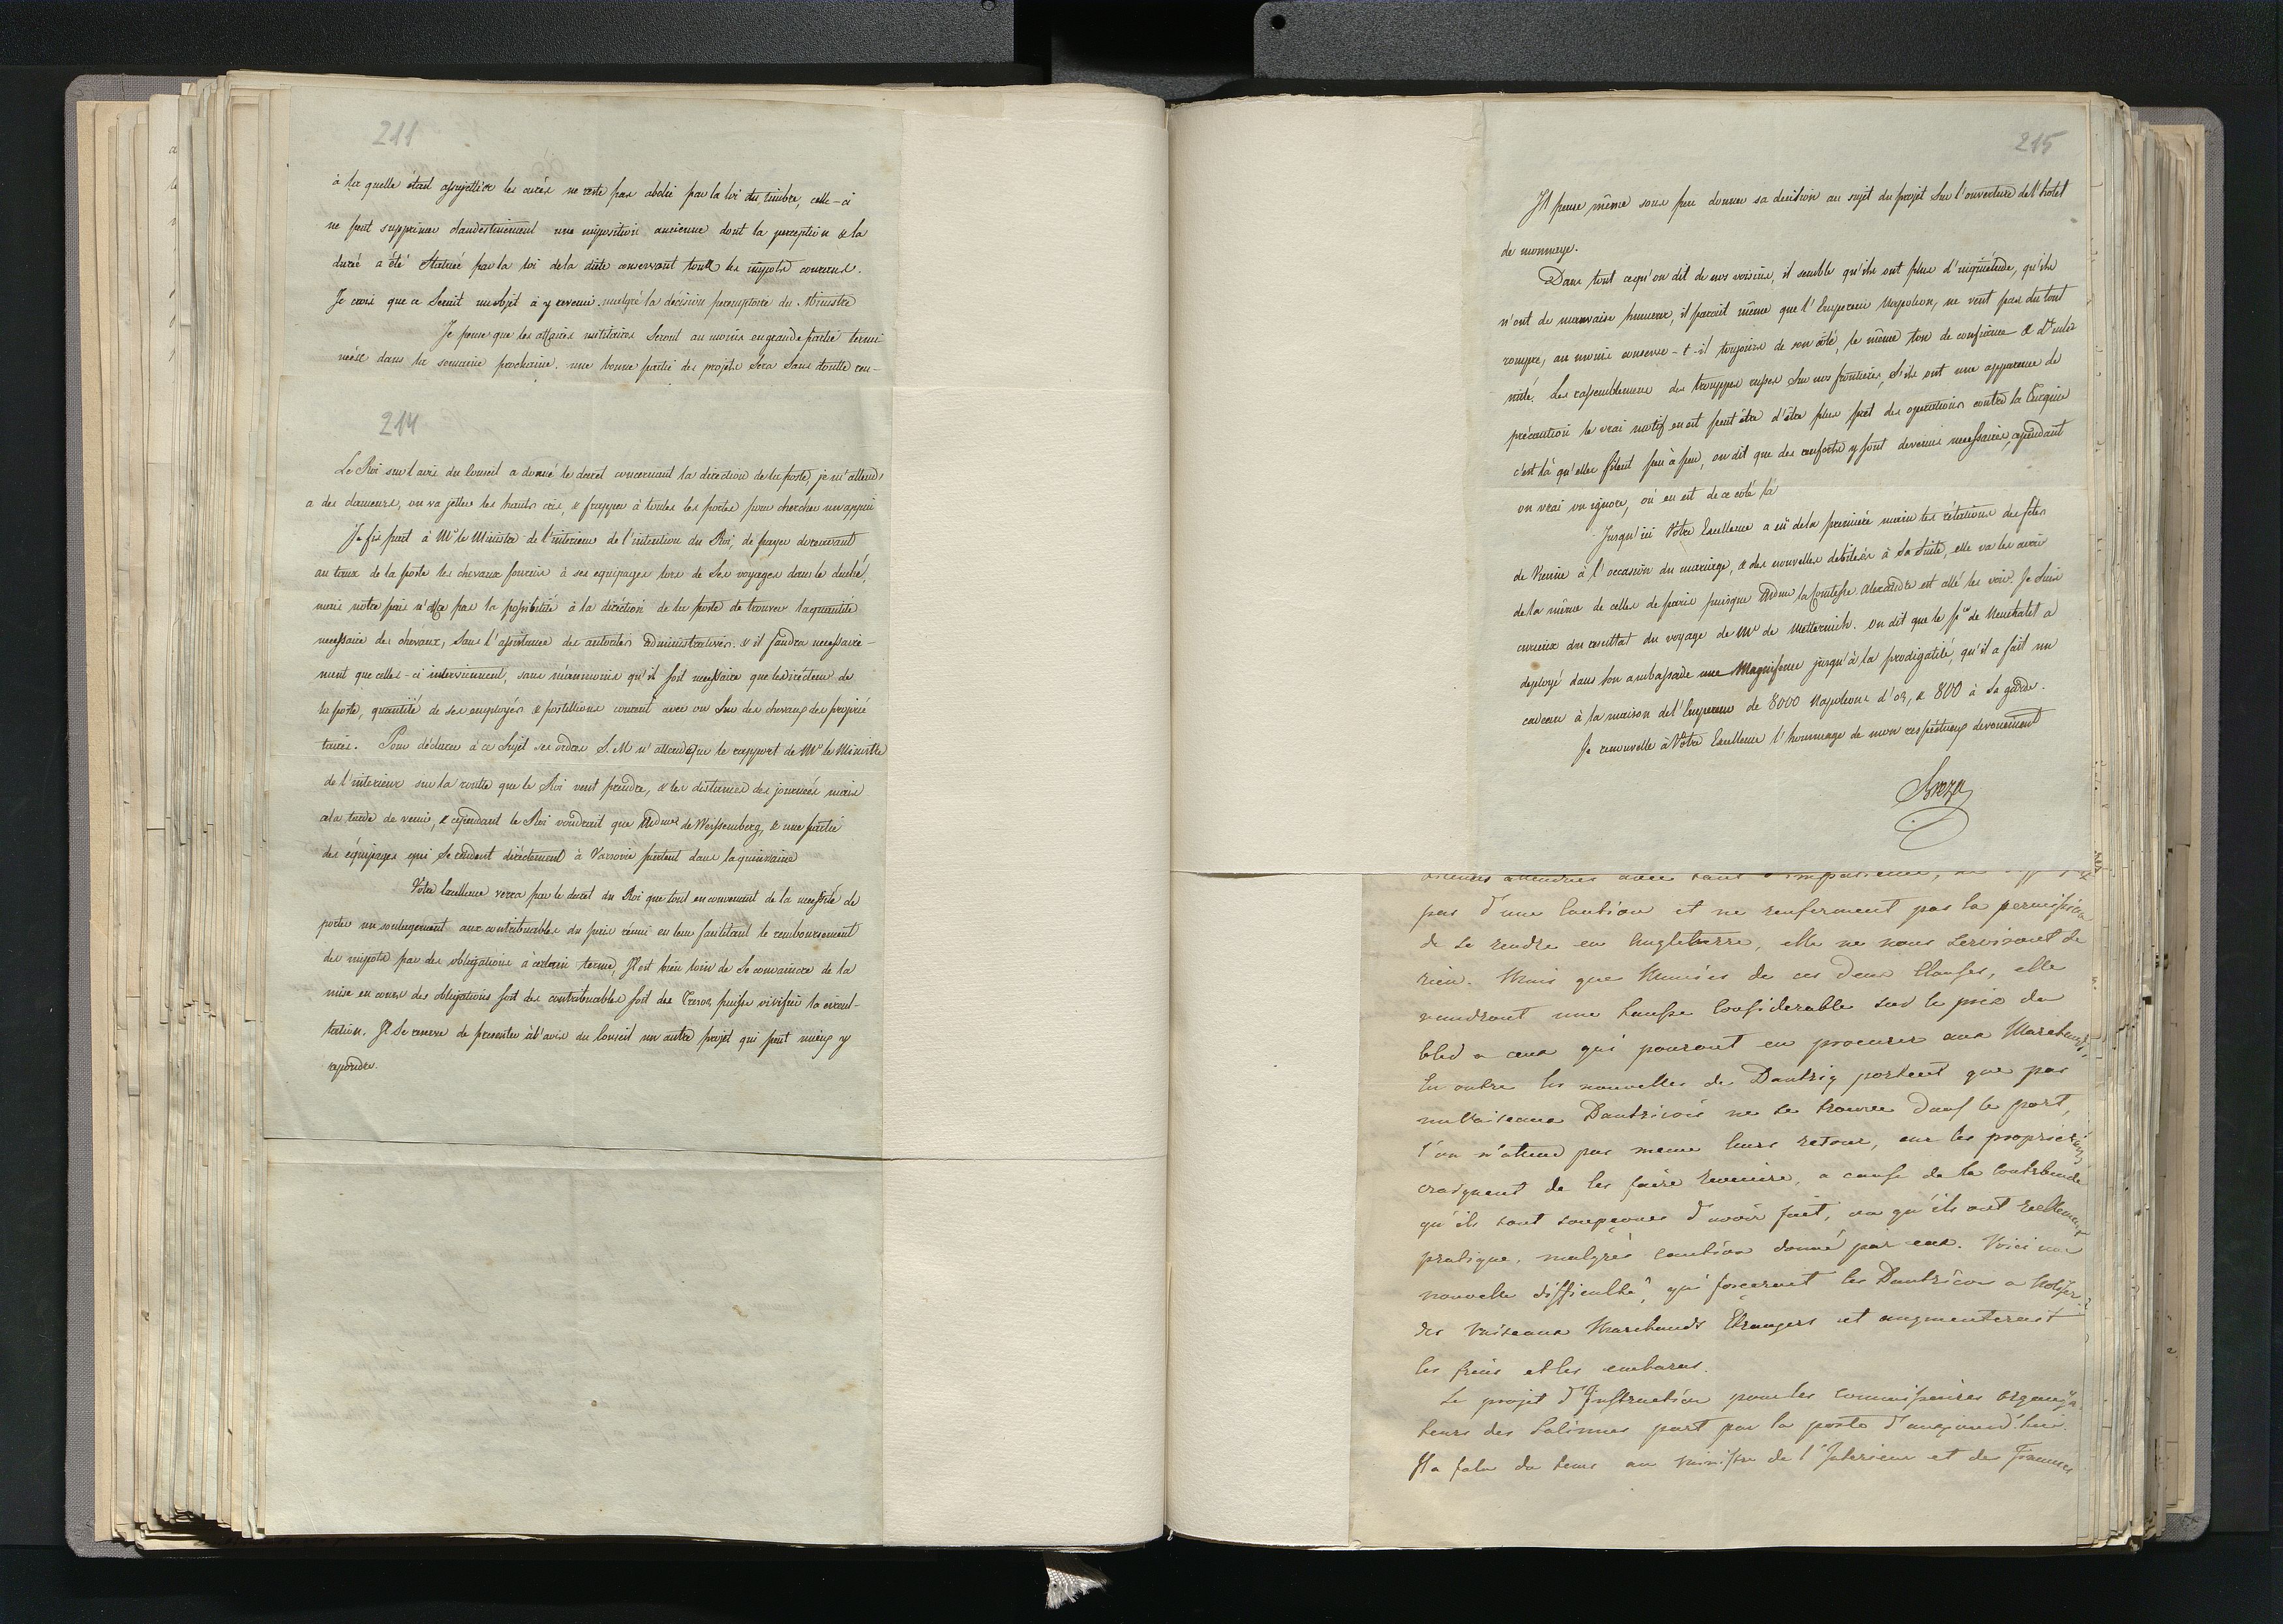 211
à la quelle étant assujettie les curés ne reste pas abolie par la loi du timbre, celle-ci
ne peut supprimer clandestinement une imposition ancienne dont la perception & la
durée a été statuée par la loi de la diète conservant tous les impots courans.
Je crois que ce serait un objet à y revenir malgré la décision peremptoire du Ministre
Je pense que les affaires militaires seront au moins en grande partie termi-
nées dans la semaine prochaine. une bonne partie des projets sera sans doutte ren-
214
Le Roi sur l'avis du Conseil a donné le decret concernant la direction de la poste, je m'attends
a des clameurs, on va jetter les hauts cris, & frapper à toutes les portes pour chercher un appui
Je fis part à Mr le Ministre de l'interieur de l'intention du Roi, de payer dorenavant
au taux de la poste les chevaux fournis à ses equipages lors de ses voyages dans le duché,
mais notre païs n'offre pas la possibilité à la direction de la poste de trouver la quantité
necessaire des chevaux, sans l'assistance des autorités administratives. & il faudra necessaire-
ment que celles-ci interviennent, sans néanmoins qu'il soit necessaire que le directeur de
la poste, quantité de ses employés & postillions courent avec ou sur des chevaux des proprié
taires. Pour déclarer à ce sujet ses ordres S. M. n'attend que le rapport de Mr le Ministre
de l'interieur sur la routte que le Roi veut prendre, & les distances des journées mais
cela tarde de venir, & cependant le Roi voudrait que Mdmes de Weissemberg, & une partie
des équipages qui se rendent directement à Varsovie partent dans la quinzaine
Votre Excellence verra par le decret du Roi que tout en convenant de la necessité de
porter un soulagement aux contribuables du païs réuni en leur facilitant le remboursement
des impots par des obligations à certain terme, Il est bien loin de se convaincre de la
mise en cours des obligations soit des contribuables soit du Tresor puisse vivifier la circul-
lation. Il se reserve de presenter à l'avis du Conseil un autre projet qui peut mieux y
repondre.
215
Il pense même sous peu donner sa decision au sujet du projet sur l'ouverture de l'hotel
de monnaye.
Dans tout ce qu'on dit de nos voisins, il semble qu'ils ont plus d'inquietude, qu'ils
n'ont de mauvaise humeur, il parait même que l'Empereur Napoleon, ne veut pas du tout
rompre, au moins conserve-t-il toujours de son côté, le même ton de confiance & d'inti
mité. Les rassemblemens des trouppes russes sur nos frontieres, s'ils ont une apparence de
précaution le vrai motif en est peut être d'être plus prêt des operations contre la Turquie
c'est là qu'elles filent peu à peu, on dit que des renforts y sont devenus necessaires, cependant
on vrai on ignore, où en est de ce coté là
Jusqu'ici Votre Excellence a eû de la première main les rélations des fêtes
de Vienne à l'occasion du mariage, & des nouvelles debitées à sa suite, elle va les avoir
de la même de celles de paris puisque Mdme la Comtesse Alexandre est allé les voir. Je suis
curieux du resultat du voyage de Mr de Metternich. On dit que le Pce de Neuchatel a
deployé dans son ambassade une Magnificence jusqu'à la prodigalité, qu'il a fait un
cadeau à la maison de l'Empereur de 8000 Napoleons d'or, & 800 à sa garde.
Je renouvelle à Votre Excellence l'hommage de mon respectueux devouement
Breza
pas d'une Caution et ne renferment pas la permission
de se rendre en Angleterre, elle ne nous serviroient de
rien. Mais que Munies de ces deux Clauses, elle
vaudront une hausse Considerable sur le prix du
bled a ceux qui pouront en procurer aux Marchands.
En outre les nouvelles de Dantzig portent que pas
un Vaisseaux Dantzicois ne se trouve dans le port,
l'on n'attend pas meme leurs retour, car les proprietaires
craignent de les faire revenire, a cause de la Contrebande
qu'ils sont soupçonés d'avoir fait, ou qu'ils ont reellement
pratique, malgrès caution donné par eux. Voici une
nouvelle difficulté, qui forceroit les Dantzicois a noliser
des Vaiseaux Marchands Etrangers et augmenteroit
les frais et les embaras.
Le projet d'Instruction pour les commissaires organisa
teurs des Salinnes part par la poste d'aujourd'hui.
Il a falu du tems au Ministre de l'Interieur et des Finances